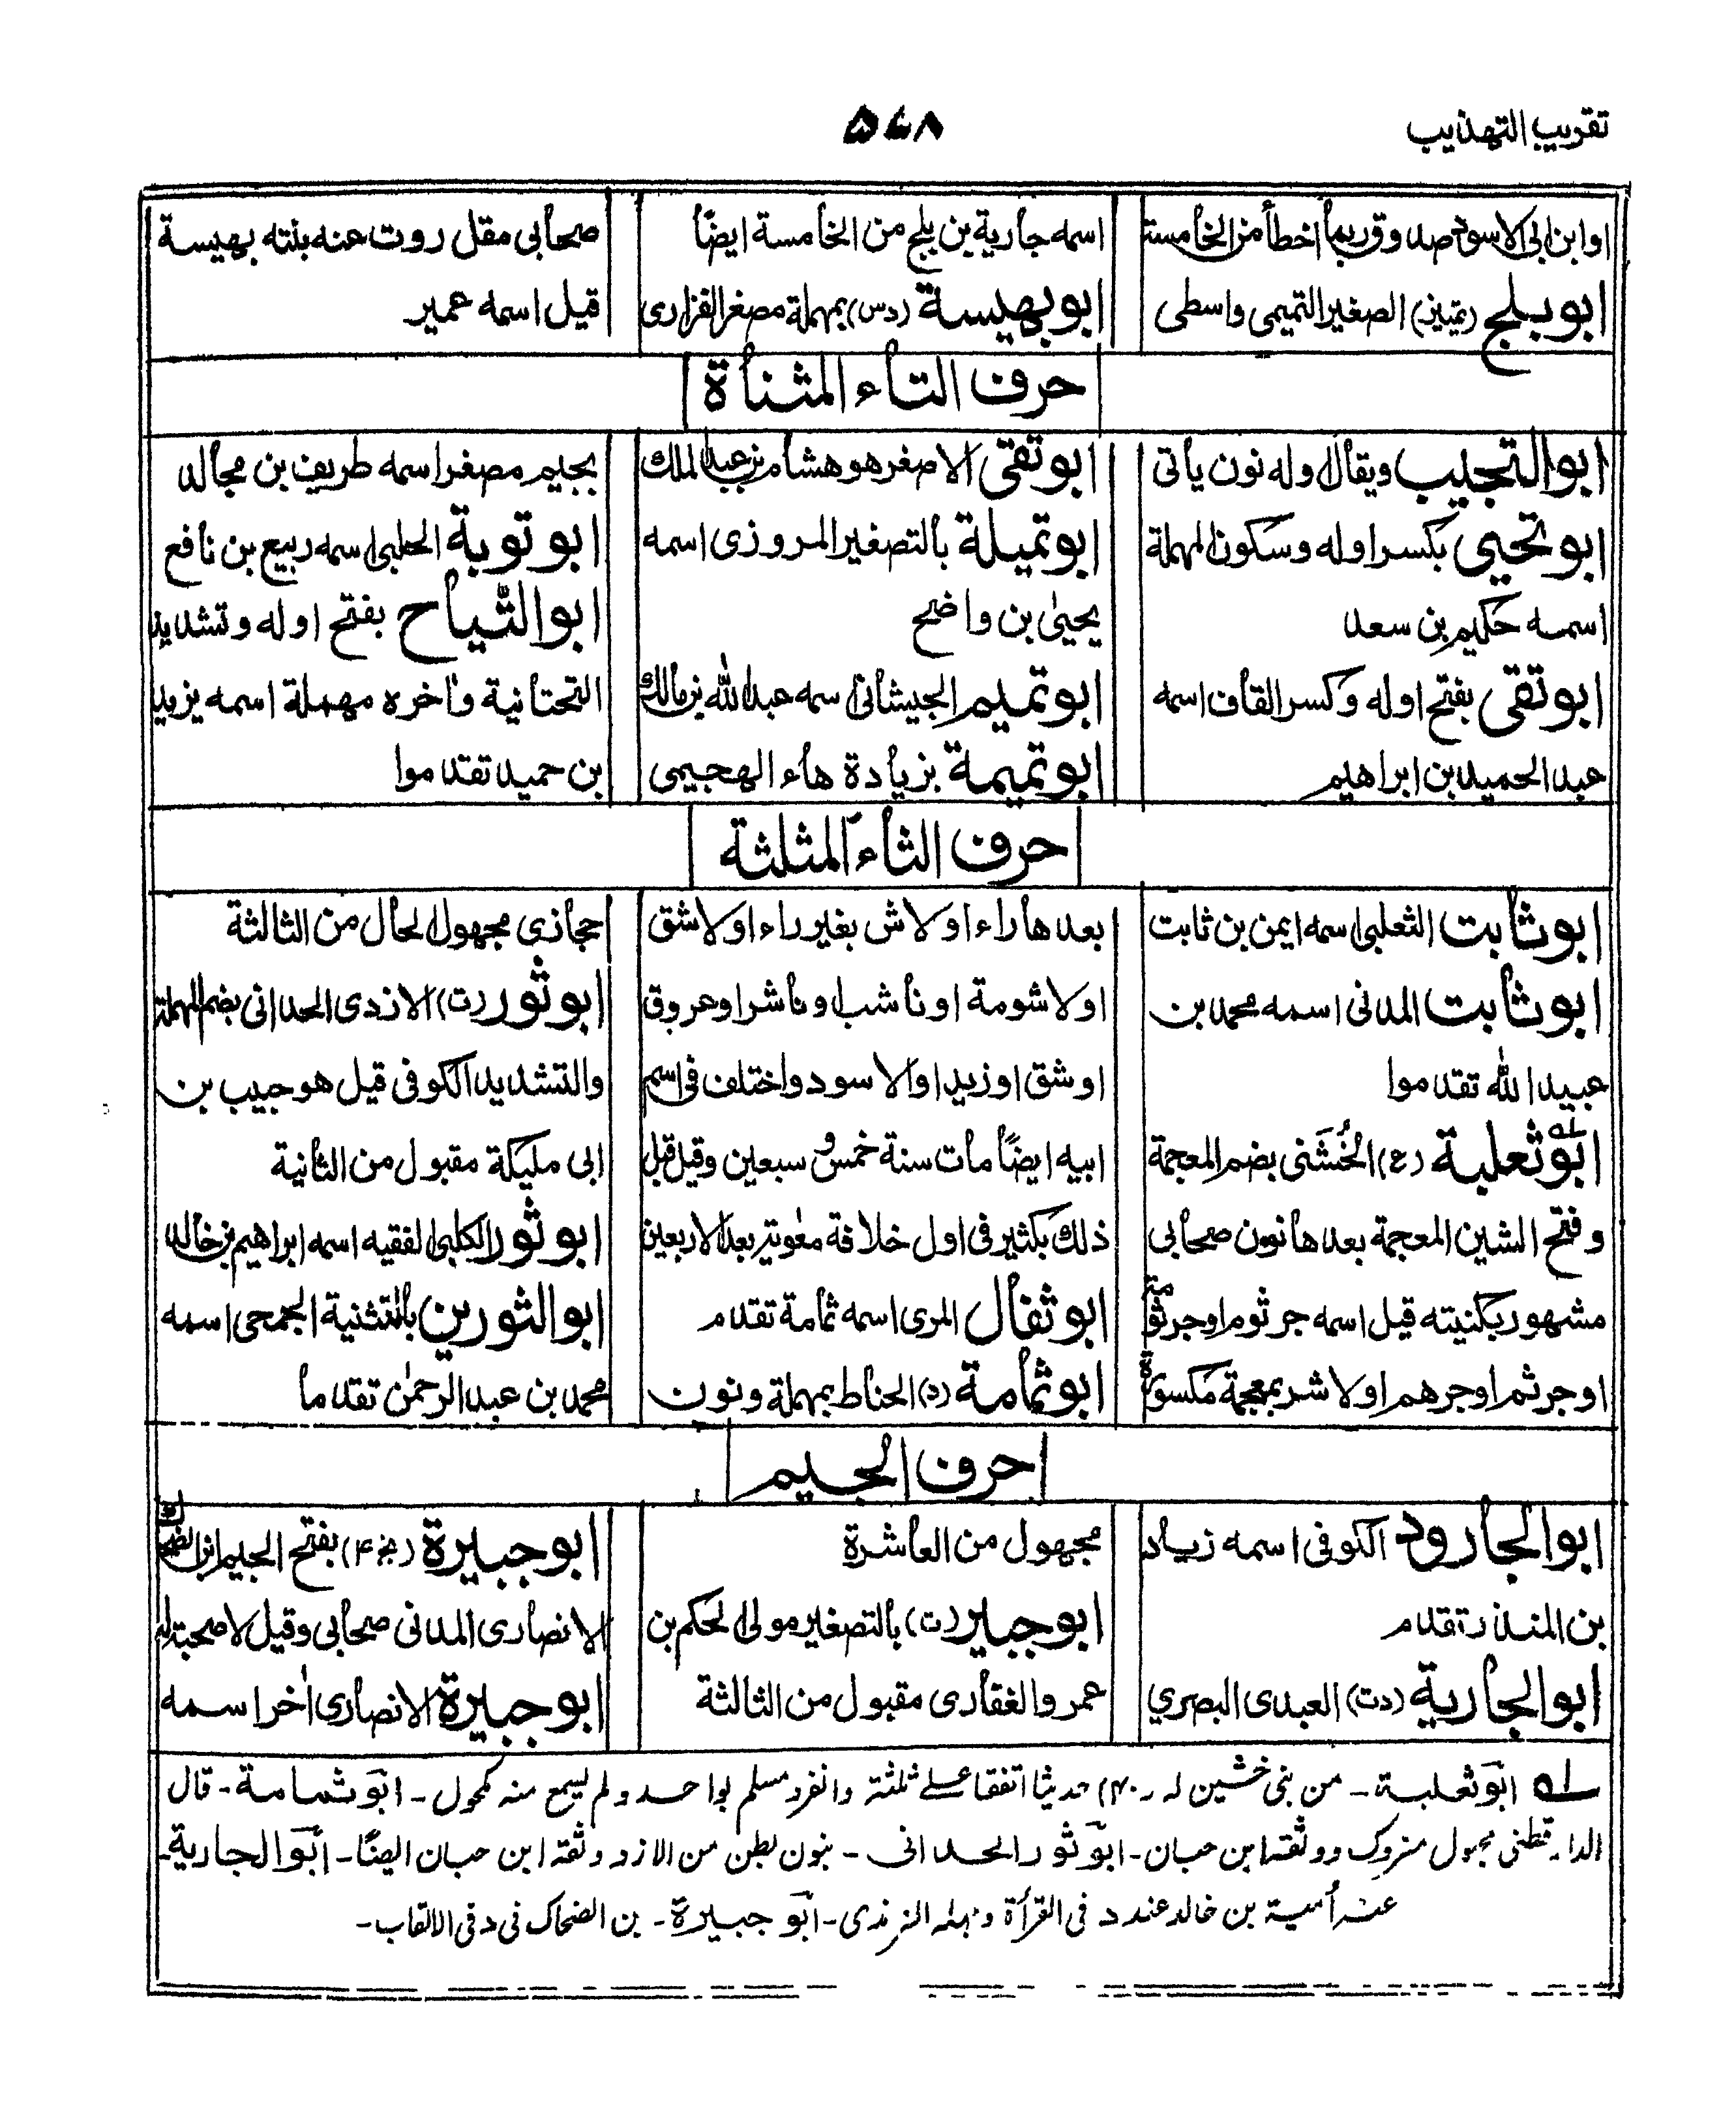 تقريب التهذيب
۵۷۸
او ابن ابى الاسود صدوق ربما اخطأ من الخامسة
ابو بلج (تمييز) الصغير التميمى واسطى
اسمه جارية بن بلج من الخامسة ايضًا
ابو بهيسة (دس) بمهملة مصغر الفزارى
صحابى مقل روت عنه بنته بهيسة
قيل اسمه عمير
حرف التاء المثناة
ابو التجيب ويقال اوله نون ياتى
ابو تحيى بكسر اوله وسكون المهملة
اسمه حكيم بن سعد
ابو تقى بفتح اوله وكسر القاف اسمه
عبد الحميد بن ابراهيم
ابو تقى الاصغر هو هشام بن عبد الملك
ابو تميلة بالتصغير المروزى اسمه
يحيىٰ بن واضح
ابو تميم الجيشانى اسمه عبد الله بن مالك
ابو تميمة بزيادة هاء الهجيمى
بجيم مصغر اسمه طريف بن مجالد
ابو توبة الحلبى اسمه ربيع بن نافع
ابو التّياح بفتح اوله وتشديد
التحتانية واٰخره مهملة اسمه يزيد
بن حميد تقدموا
حرف الثاء المثلثة
ابو ثابت الثعلبى اسمه ايمن بن ثابت
ابو ثابت المدنى اسمه محمد بن
عبيد الله تقدموا
ابو ثعلبة (ع) الخُشَنى بضم المعجمة
وفتح الشين المعجمة بعدها نون صحابى
مشهور بكنيته قيل اسمه جرثوم او جرثومة
او جرثم او جرهم او لاشر بمعجمة مكسورة
بعدها راء او لاش بغير راء او لاشق
او لاشومة او ناشب او ناشر او عروق
او شق او زيد او الاسود واختلف فى اسم
ابيه ايضًا مات سنة خمس و سبعين وقيل قبل
ذلك بكثير فى اول خلافة معٰوية بعد الاربعين
ابو ثفال المرى اسمه ثمامة تقدم
ابو ثمامة (د) الحناط بمهملة ونون
حجازى مجهول الحال من الثالثة
ابو ثور (ت) الازدى الحدانى بضم المهملة
والتشديد الكوفى قيل هو حبيب بن
ابى مليكة مقبول من الثانية
ابو ثور الكلبى الفقيه اسمه ابراهيم بن خالد
ابو الثورين بالتثنية الجمحى اسمه
محمد بن عبد الرحمٰن تقدما
حرف الجيم
ابو الجارود الكوفى اسمه زياد
بن المنذر تقدم
ابو الجارية (دت) العبدى البصرى
مجهول من العاشرة
ابو جبير (ت) بالتصغير مولى الحكم بن
عمرو الغفارى مقبول من الثالثة
ابو جبيرة (بخ ۴) بفتح الجيم ابن الضحاك
الانصارى المدنى صحابى وقيل لا صحبة له
ابو جبيرة الانصارى اٰخر اسمه
له ابو ثعلبة - من بنى خشين له (۴۰) حديثا اتفقا على ثلثة وانفرد مسلم بواحد ولم يسمع منه مكحول - ابو ثمامة - قال
الدارقطنى مجهول متروك ووثقه ابن حبان - ابو ثور الحدانى - بنون بطن من الازد وثقه ابن حبان ايضًا - ابو الجارية -
عنه اُمية بن خالد عند د فى القرأة وجهله الترمذى - ابو جبيرة - بن الضحاك فى د فى الالقاب -